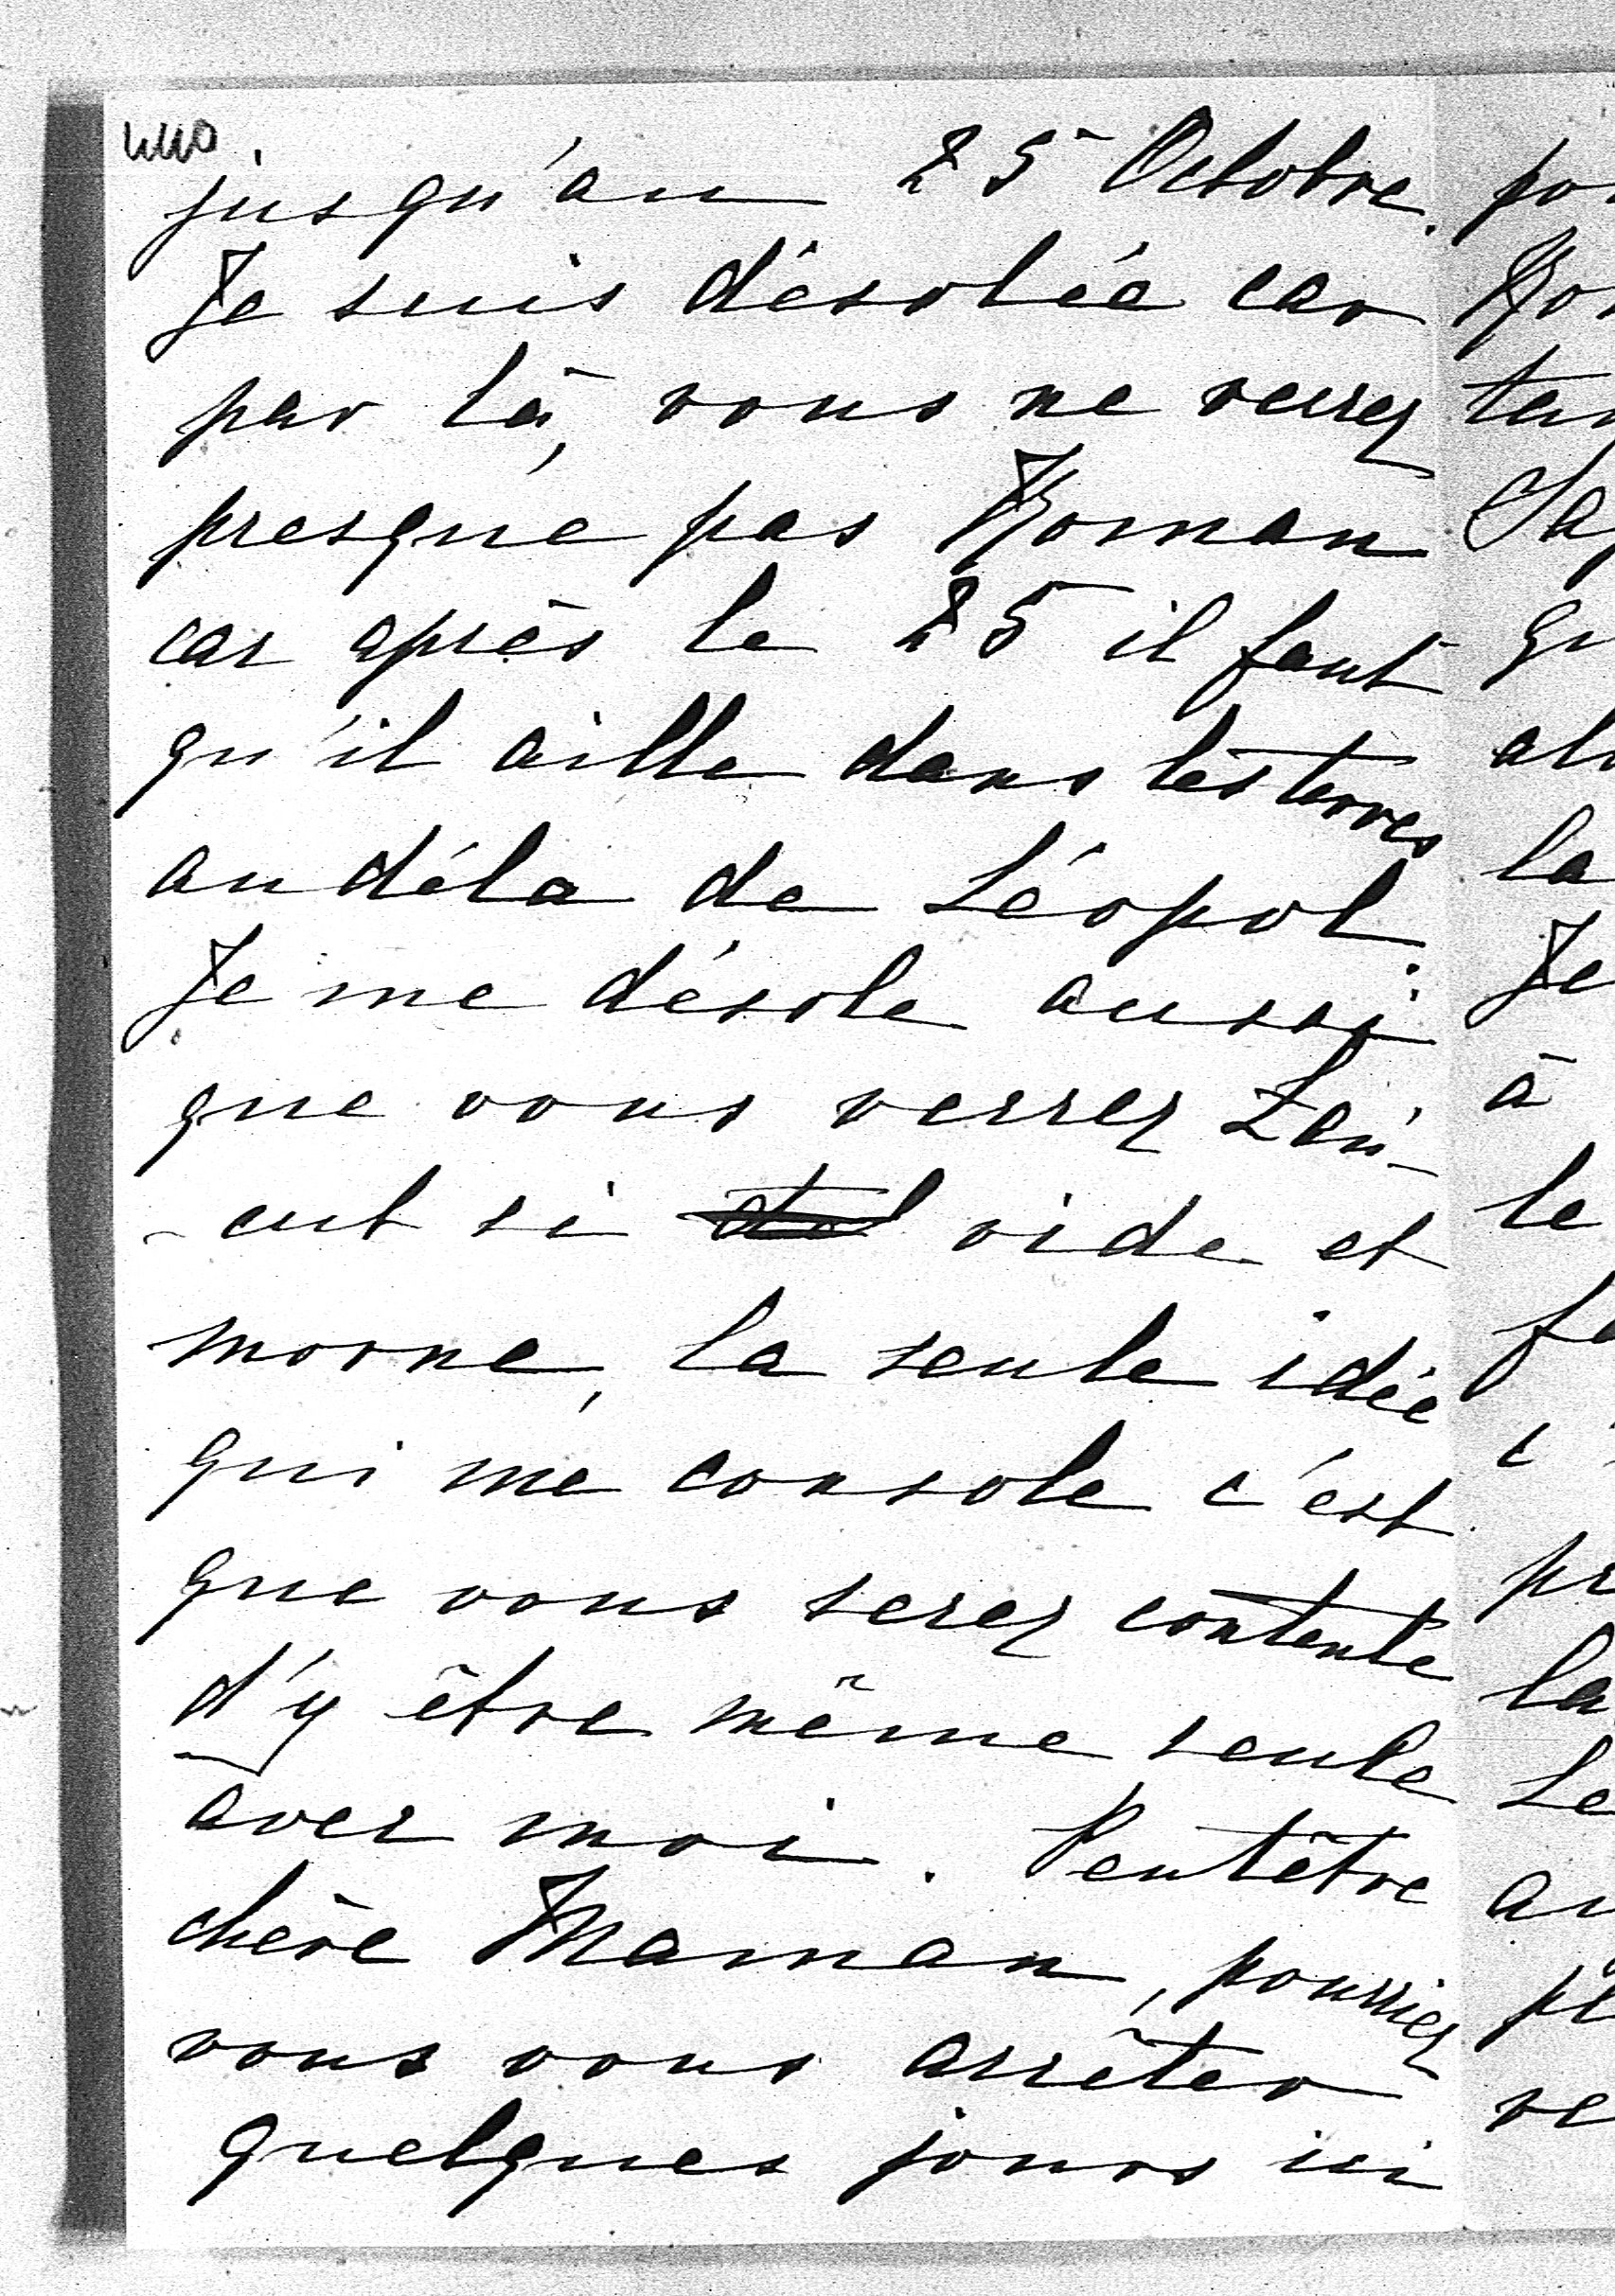 jusqu'au 25 Octobre.
Je suis désolée car
par là, vous ne verrez
presque pas Roman
car après le 25 il faut
qu'il aille dans les terres
au déla de Léopol.
Je me désole aussi
que vous verrez Łań-
-cut si vide et
morne, la seule idée
qui me console c'est
que vous serez contente
d'y être même seule
avec moi. Peutêtre
chère Maman, pourriez
vous vous arrêter
quelques jours ici